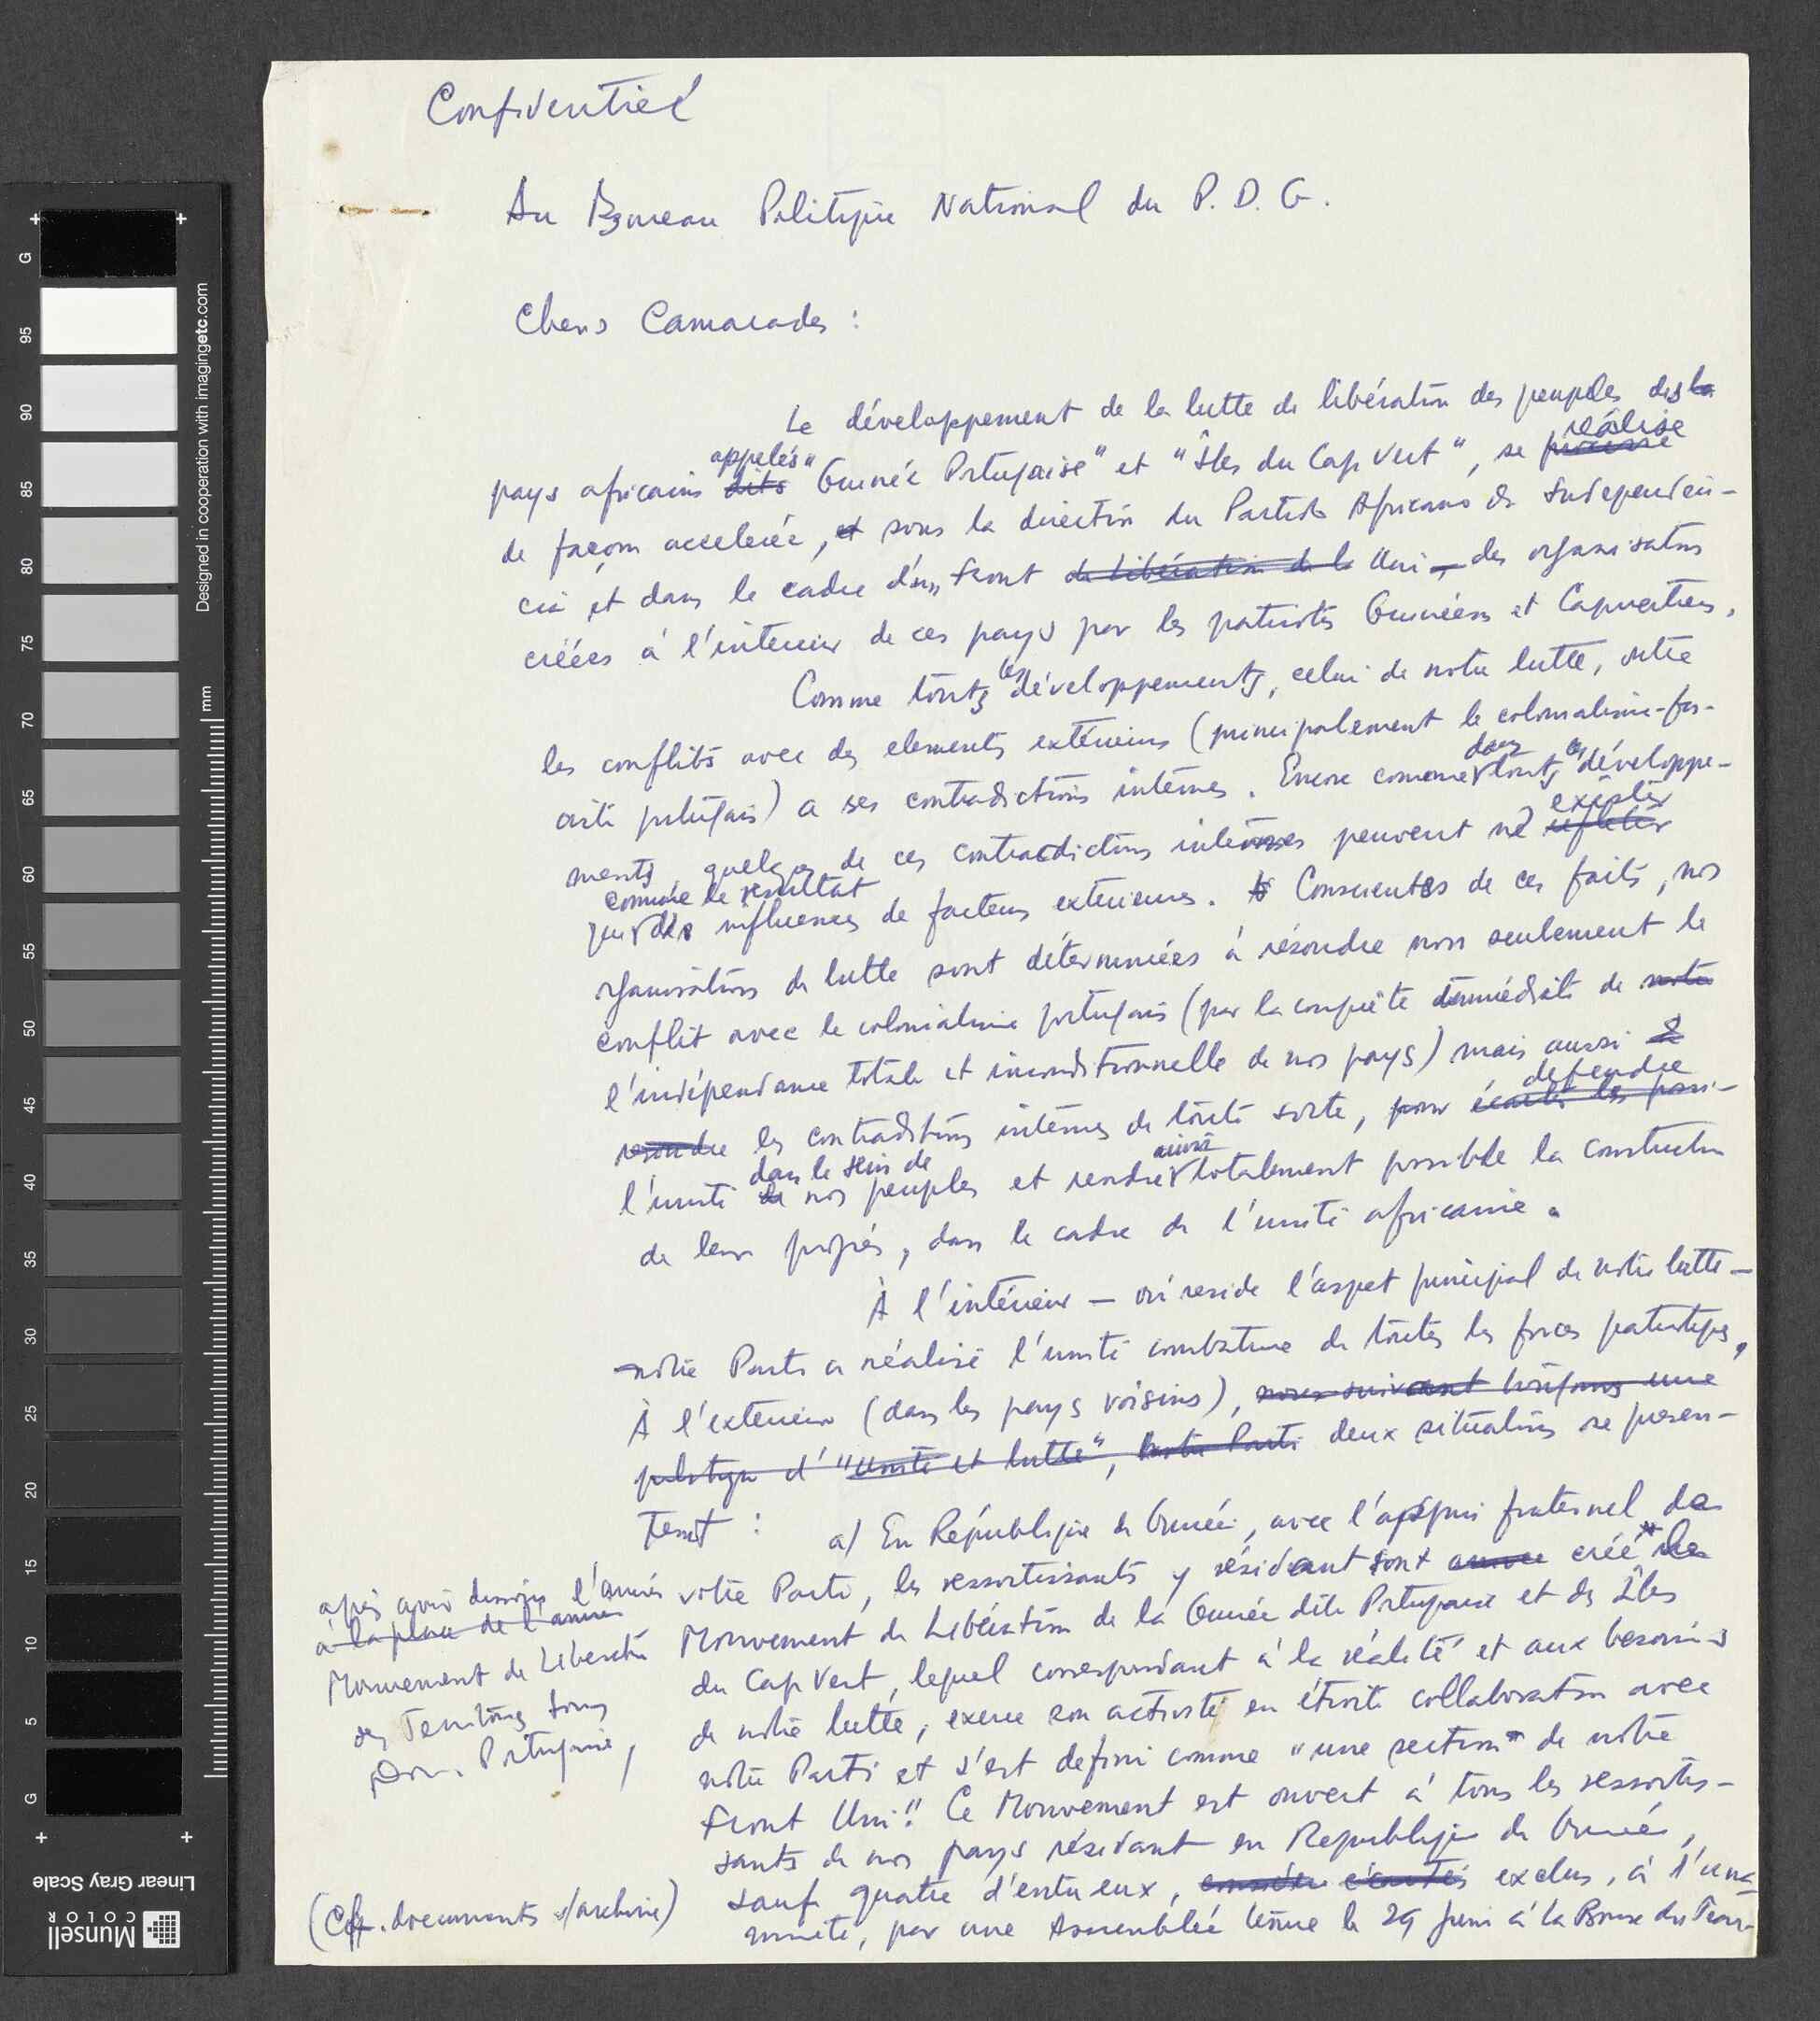 Confidentiel
Au Bureau Politique National du P. D. G.
Chers Camarades :
Le développement de la lutte de libération des peuples des la
appelés réalise
pays africains dits "Guinée Portugaise" et "Îles du Cap Vert", se
de façon accelerée, et sous la direction du Partido Africano da Independên-
cia et dans le cadre d'un Front de Libération de l Uni des organisations
créées à l'intérieur de ces pays par les patriotes Guinéens et Capverdiens.
Comme touts les développements, celui de notre lutte, outre
les conflits avec des elements extérieurs (principalement le colonialisme-fas-
dans les
ciste portugais) a ses contradictions internes. Encore comme touts développe-
exister
ments, quelques de ces contradictions internes peuvent ne refléter
comme le resultat
que des influences de facteurs exterieurs. Conscientes de ces faits, nos
organisations de lutte sont déterminées à résoudre non seulement le
conflit avec le colonialisme portugais (par la conquête immédiate de notre
l'indépendance totale et inconditionnelle de nos pays) mais aussi
defendre
resoudre les contradictions internes de toute sorte, pour écarter les possi-
dans le sein de ainsi
l'unité de nos peuples et rendre totalement possible la construction
de leur progrès, dans le cadre de l'unité africaine.
À l'intérieur — où reside l'aspet principal de notre lutte —
notre Parti a réalisé l'unité combative de toutes les forces patriotiques.
À l'exterieur (dans les pays voisins), nous suivant toujours une
politique d'"unité et lutte", notre Parti deux situations se presen-
tent : a) En République de Guinée, avec l'appui fraternel de
votre Parti, les ressortissants y résidant sont créé le
Mouvement de Libération de la Guinée dite Portugaise et des Îles
du Cap Vert, lequel correspondant à la réalité et aux besoins
de notre lutte, exerce son activité en étroite collaboration avec
notre Parti et s'est defini comme "une section de notre
Front Uni". Ce Mouvement est ouvert à tous les ressortis-
sants de nos pays résidant en Republique de Guinée,
sauf quatre d'entre eux, écartés exclus, à l'una-
nimité, par une Assemblée tenue le 29 juin à la Bourse du Trav-
après avoir l'ancien
à la place de l'ancien
Mouvement de Libération
des Territoires sous
Dom. Portugaise,
(Cf. documents s/archive)
Designed in cooperation with imagingetc.com
mm
G
95
90
85
80
75
70
65
60
55
50
45
40
35
30
25
20
15
10
5
G
Linear Gray Scale
Munsell
COLOR